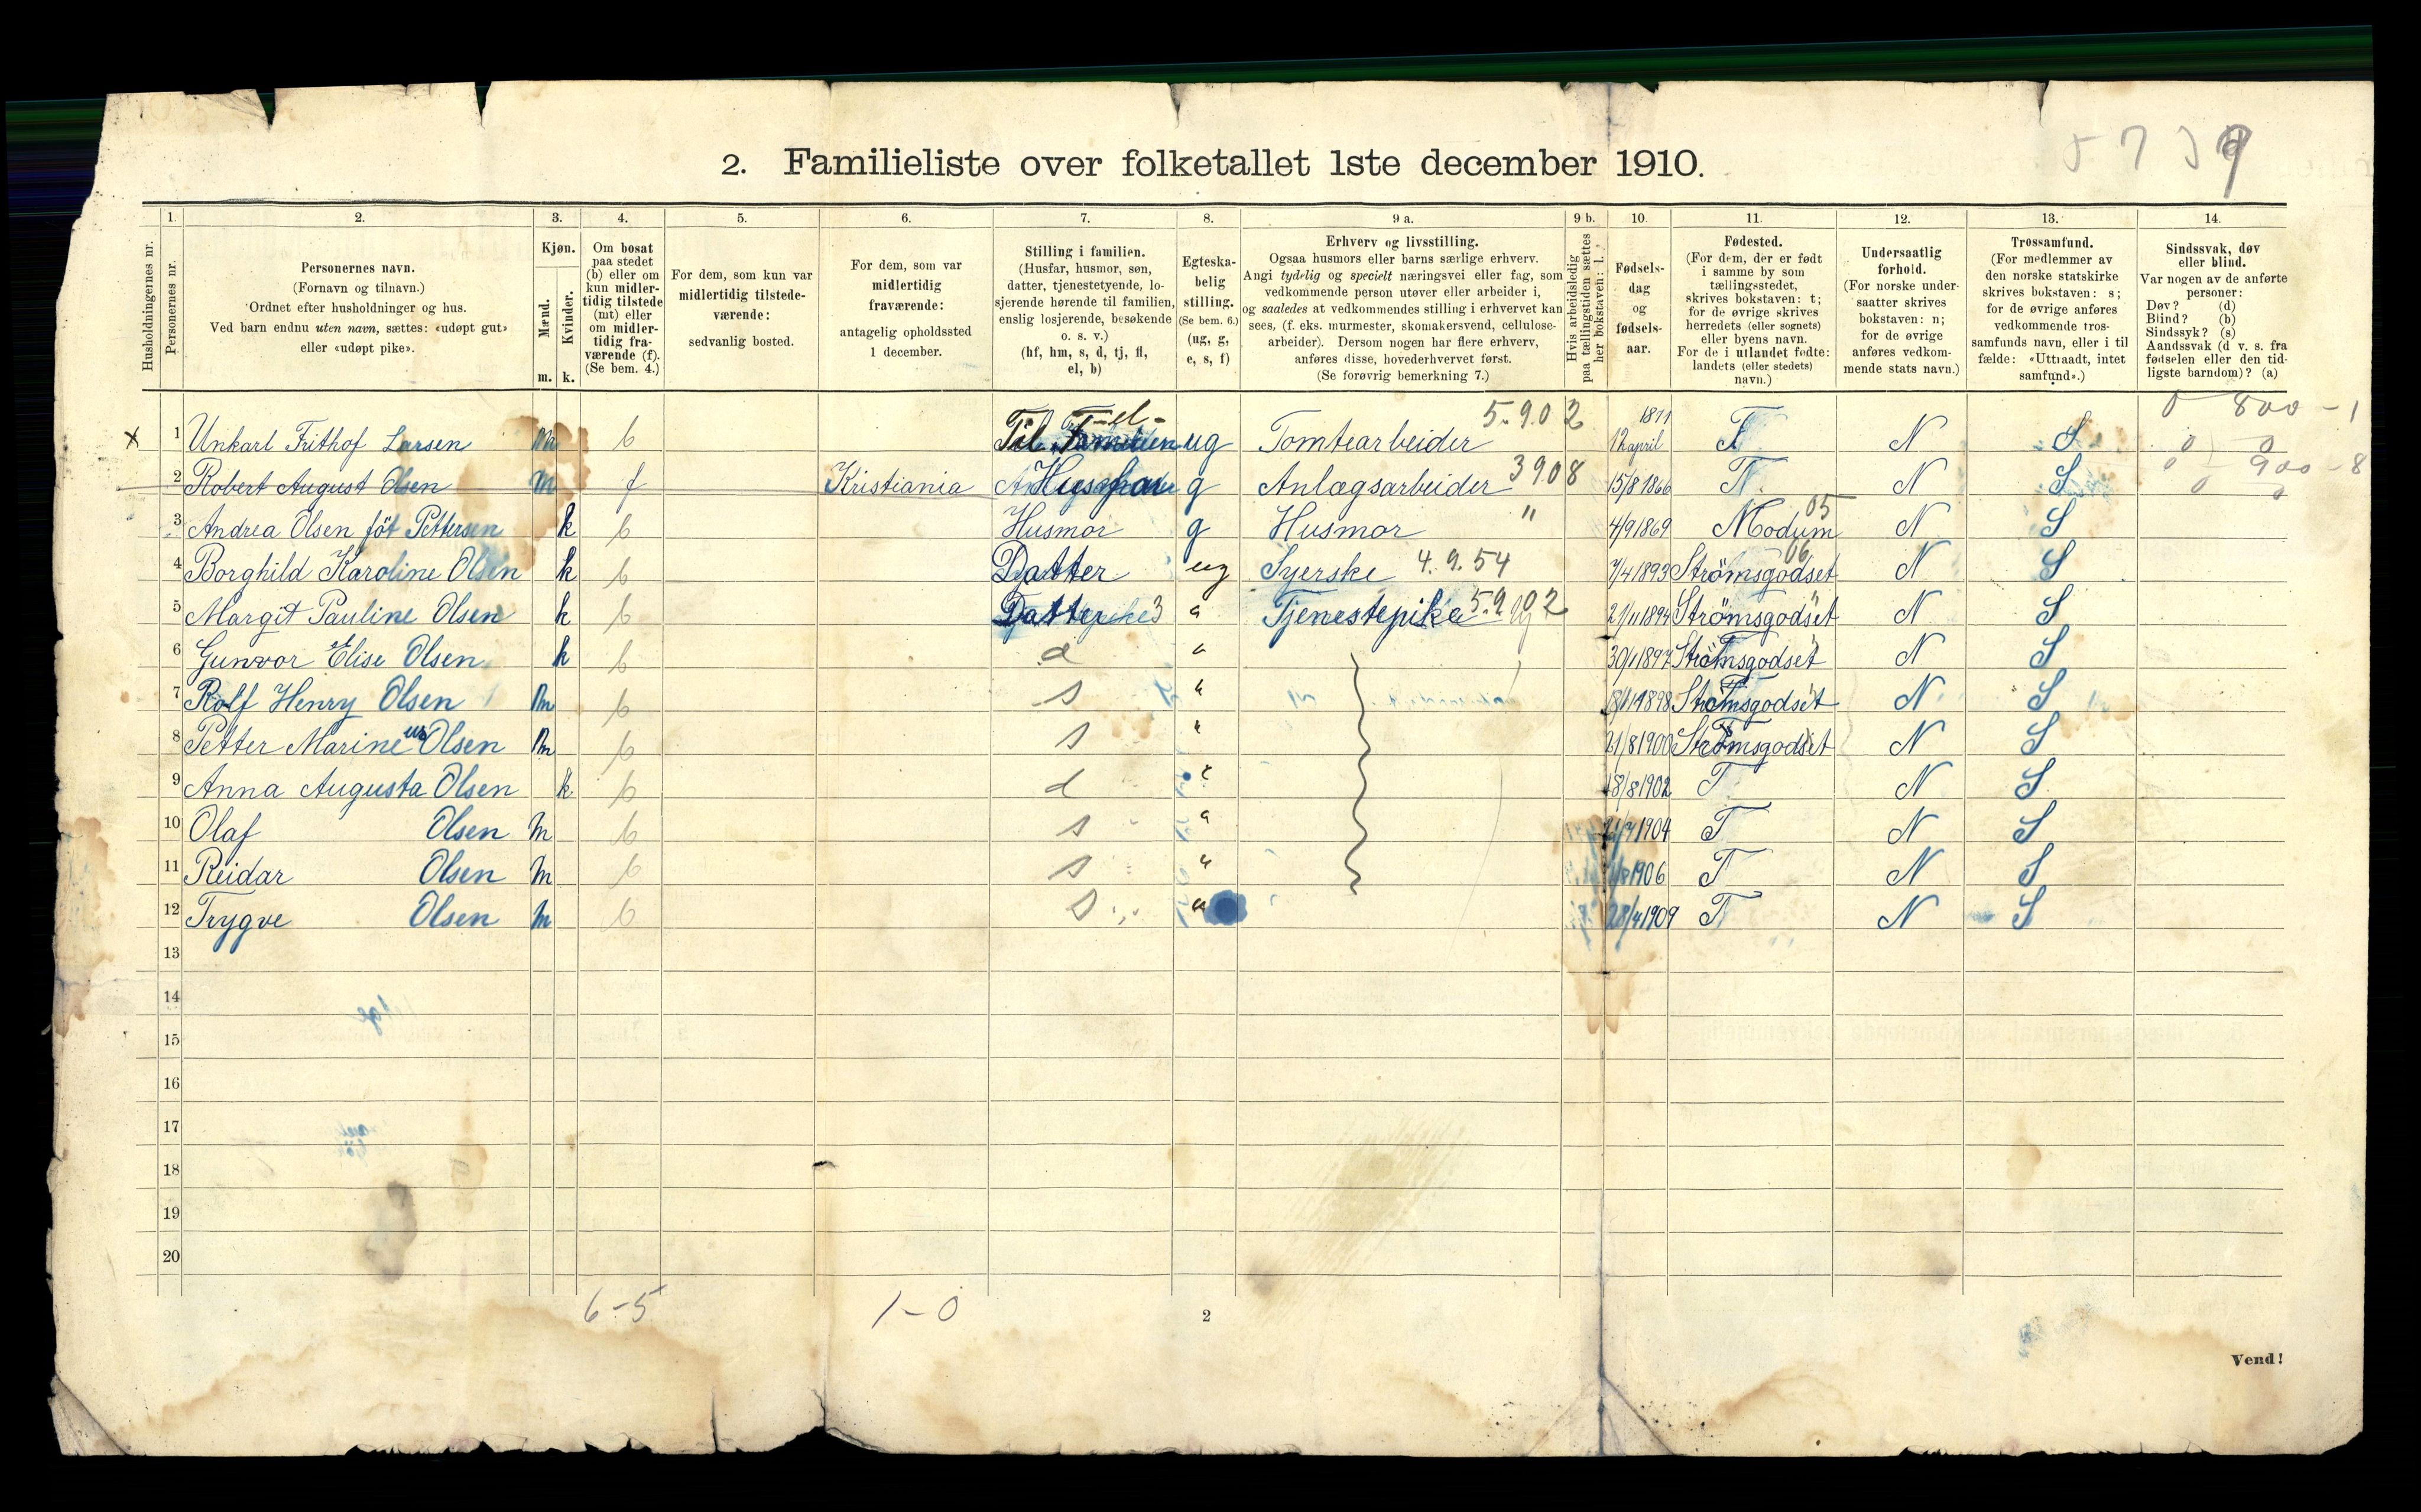 5739
2. Familieliste over folketallet 1ste december 1910.
Husholdningernes nr.
1.
Personernes nr.
2.
Personernes navn.
(Fornavn og tilnavn.)
Ordnet efter husholdninger og hus.
Ved barn endnu uten navn, sættes: «udøpt gut»
eller «udøpt pike».
3.
Kjøn.
Mænd.
Kvinder.
m. k.
4.
Om bosat
paa stedet
(b) eller om
kun midler-
tidig tilstede
(mt) eller
om midler-
tidig fra-
værende (f).
(Se bem. 4.)
5.
For dem, som kun var
midlertidig tilstede-
værende:
sedvanlig bosted.
6.
For dem, som var
midlertidig
fraværende:
antagelig opholdssted
1 december.
7.
Stilling i familien.
(Husfar, husmor, søn,
datter, tjenestetyende, lo-
sjerende hørende til familien,
enslig losjerende, besøkende
o. s. v.)
(hf, hm, s, d, tj, fl,
el, b)
8.
Egteska-
belig
stilling.
(Se bem. 6.)
(ug, g,
e, s, f)
9 a.
Erhverv og livsstilling.
Ogsaa husmors eller barns særlige erhverv.
Angi tydelig og specielt næringsvei eller fag, som
vedkommende person utøver eller arbeider i,
og saaledes at vedkommendes stilling i erhvervet kan
sees, (f. eks. murmester, skomakersvend, cellulose-
arbeider). Dersom nogen har flere erhverv,
anføres disse, hovederhvervet først.
(Se forøvrig bemerkning 7.)
9 b.
Hvis arbeidsledig
paa tællingstiden sættes
her bokstaven: l.
10.
Fødsels-
dag
og
fødsels-
aar.
11.
Fødested.
(For dem, der er født
i samme by som
tællingsstedet,
skrives bokstaven: t;
for de øvrige skrives
herredets (eller sognets)
eller byens navn.
For de i utlandet fødte:
landets (eller stedets)
navn.)
12.
Undersaatlig
forhold.
(For norske under-
saatter skrives
bokstaven: n;
for de øvrige
anføres vedkom-
mende stats navn.)
13.
Trossamfund.
(For medlemmer av
den norske statskirke
skrives bokstaven: s;
for de øvrige anføres
vedkommende tros-
samfunds navn, eller i til
fælde: «Uttraadt, intet
samfund».)
14.
Sindssvak, døv
eller blind.
Var nogen av de anførte
personer:
Døv? (d)
Blind? (b)
Sindssyk? (s)
Aandssvak (d v. s. fra
fødselen eller den tid-
ligste barndom)? (a)
el- 5.9.02 1871 0 800 - 1
x 1 Unkarl Frithof Larsen m b Til Familien ug Tomtearbeider 12 april T N S 0 0
3908 0 900 - 8
2 Robert August Olsen m f Kristiania Husfar g Anlægsarbeider 15/8 1866 T N S 0 0
3 Andrea Olsen föt Pettersen k b Husmor g Husmor " 4/9 1869 Modum 05 N S
4 Borghild Karoline Olsen k b Datter ug Syerske 4.9.54 7/4 1893 Strömsgodset 06 N S
5 Margit Pauline Olsen k b Datter " Tjenestepike 5.9.02 21/11 1894 Strömsgodset N S
6 Gunvor Elise Olsen k b d " 30/1 1897 Strömsgodset N S
7 Rolf Henry Olsen m b s " 1898 Strömsgodset N S
8 Petter Marineus Olsen m b s " 21/8 1900 Strömsgodset N S
9 Anna Augusta Olsen k b d " 18/8 1902 T N S
10 Olaf Olsen m b s " 1904 T N S
11 Reidar Olsen m b s " 1906 T N S
12 Trygve Olsen m b s " 28/4 1909 T N S
13
14
15
16
17
18
19
20
6-5 1-0 2
Vend!